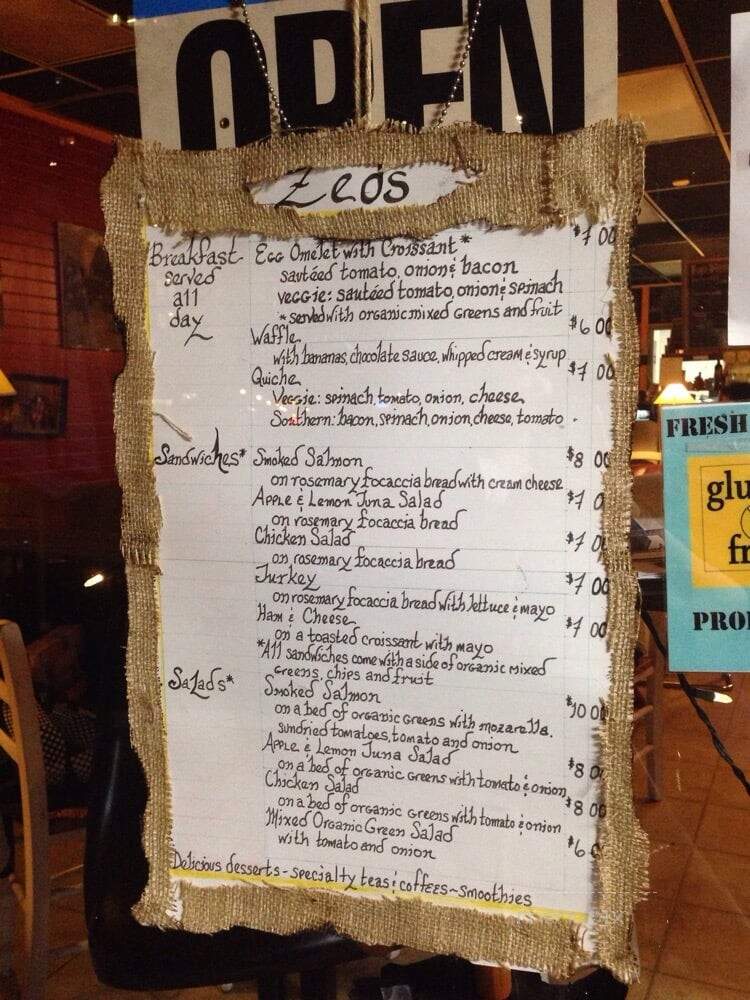 OPEN
Zeds
Breakfast served all day
Egg Omelet with Croissant* $7 00
sautéed tomato, onion & bacon
veggie: sautéed tomato, onion & spinach
*served with organic mixed Greens and fruit
Waffle $6 00
with bananas, chocolate sauce, whipped cream & syrup
Quiche $7 00
Veggie: spinach, tomato, onion, cheese
Southern: bacon, spinach, onion, cheese, tomato
Sandwiches* Smoked Salmon $8 00
on rosemary focaccia bread with cream cheese
Apple & Lemon Tuna Salad $7 0
on rosemary focaccia bread
Chicken Salad $7 0
on rosemary focaccia bread
Turkey $7 00
on rosemary focaccia bread with lettuce & mayo
Ham & Cheese $7 00
on a toasted croissant with mayo
*All sandwiches come with a side of organic mixed
greens, chips and fruit
Salads* Smoked Salmon $10 0
on a bed of organic Greens with mozarella,
sundried tomatoes, tomato and onion
Apple & Lemon Tuna Salad $8 0
on a bed of organic Greens with tomato & onion
Chicken Salad $8 00
on a bed of organic Greens with tomato & onion
Mixed Organic Green Salad $6
with tomato and onion
Delicious desserts - specialty teas & coffees ~ smoothies
FRESH
glu
fr
PRO